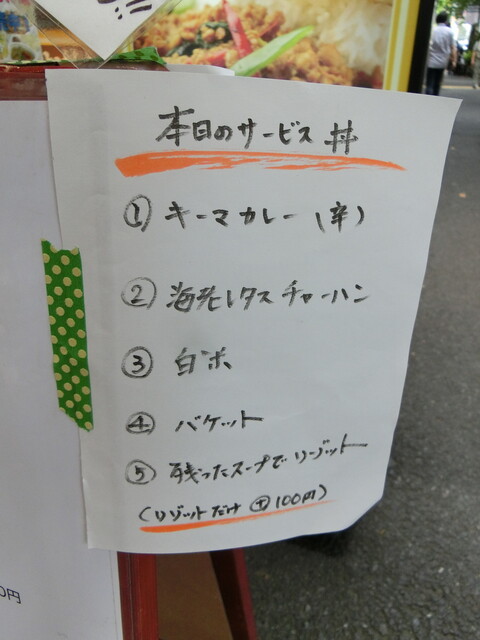 本日のサービス丼
① キーマカレー(辛)
② 海老レタスチャーハン
③ 白米
④ バケット
⑤ 残ったスープでリゾット
(リゾットだけ ⊕100円)
0円